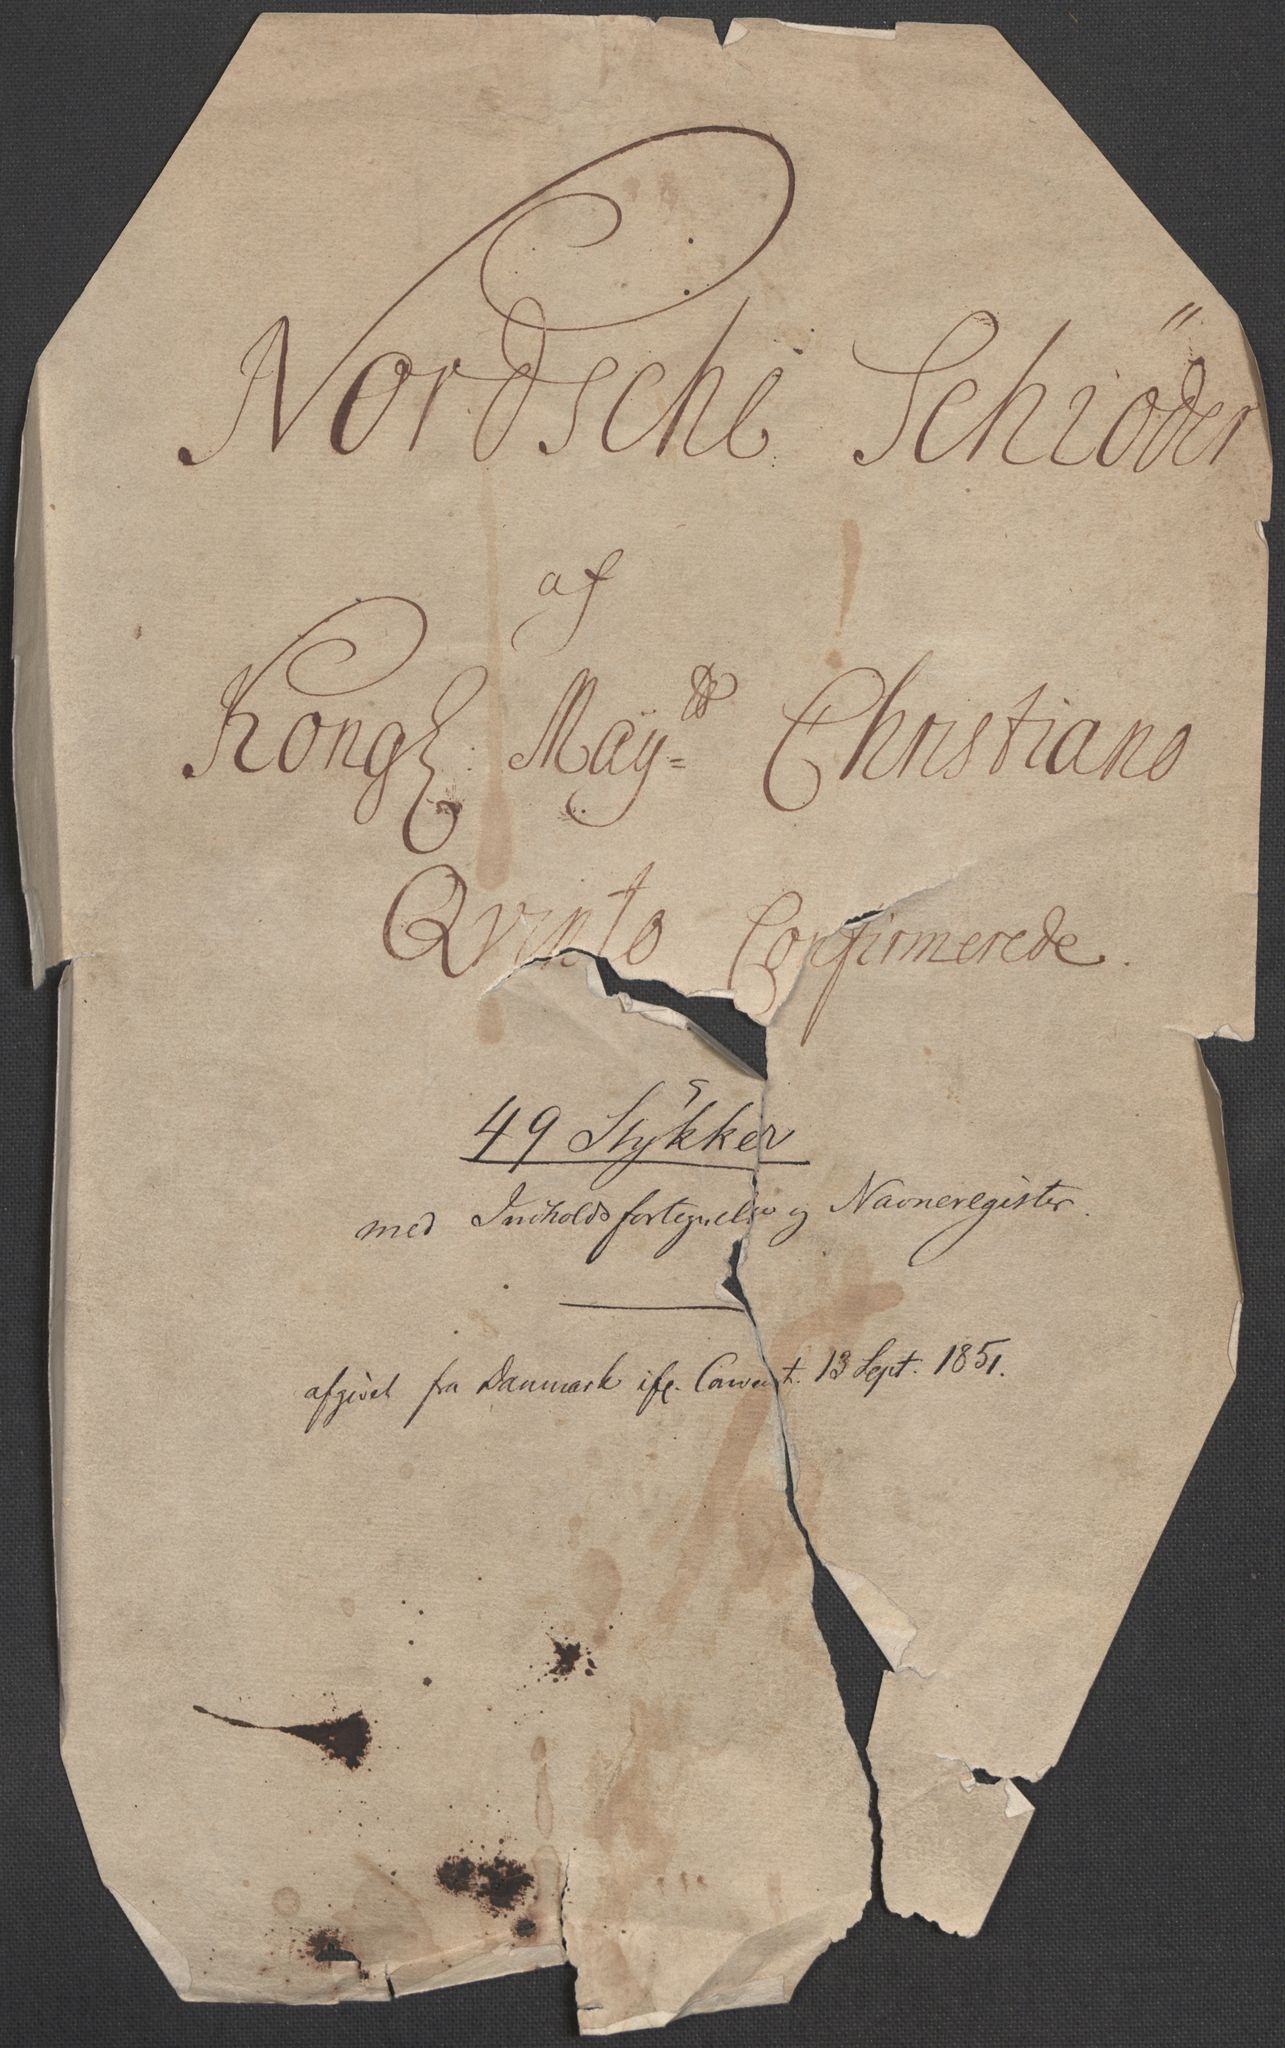 Nordsche Schiöder
af
Kongl: May:tt Christiano
Qvinto Confirmerede.
49 Stykker
med Indholdsfortegnelse og Navneregister.
afgivet fra Danmark ifl. Convent. 13 Sept. 1851.